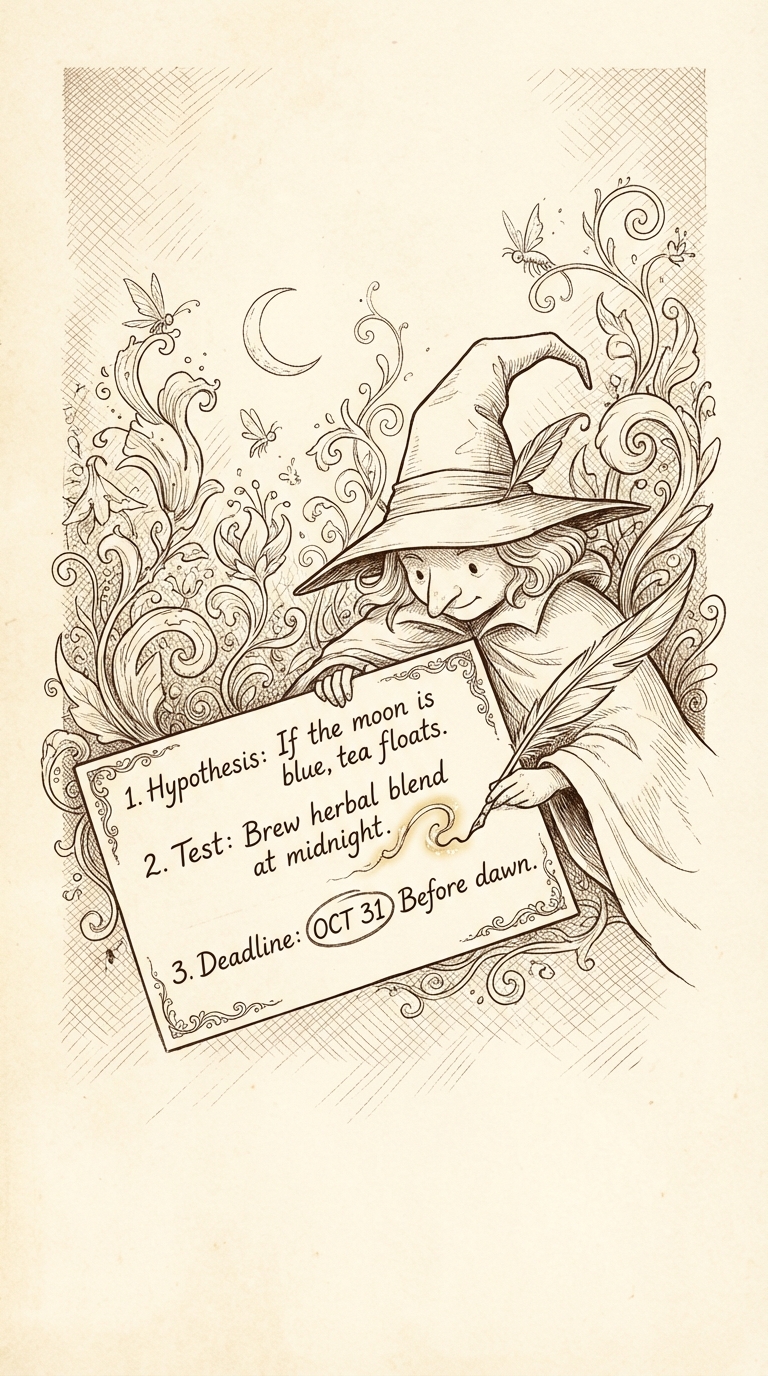 1. Hypothesis: If the moon is
blue, tea floats.
2. Test: Brew herbal blend
at midnight.
3. Deadline: OCT 31 Before dawn.